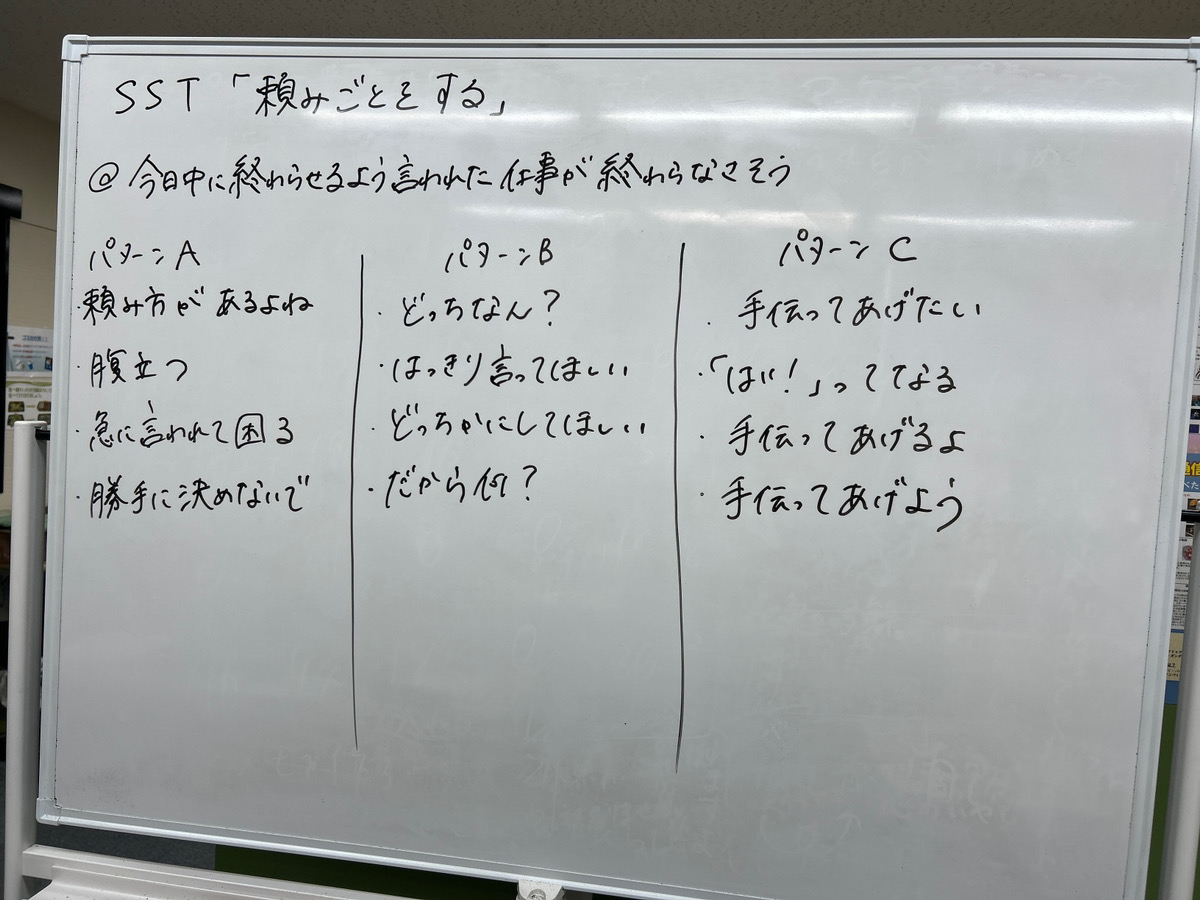 SST「頼みごとをする」
@今日中に終わらせるよう言われた仕事が終わらなさそう
パターンA
・頼み方があるよね
・腹立つ
・急に言われて困る
・勝手に決めないで
パターンB
・どっちなん?
・はっきり言ってほしい
・どっちかにしてほしい
・だから何?
パターンC
・手伝ってあげたい
・「はい!」ってなる
・手伝ってあげるよ
・手伝ってあげよう